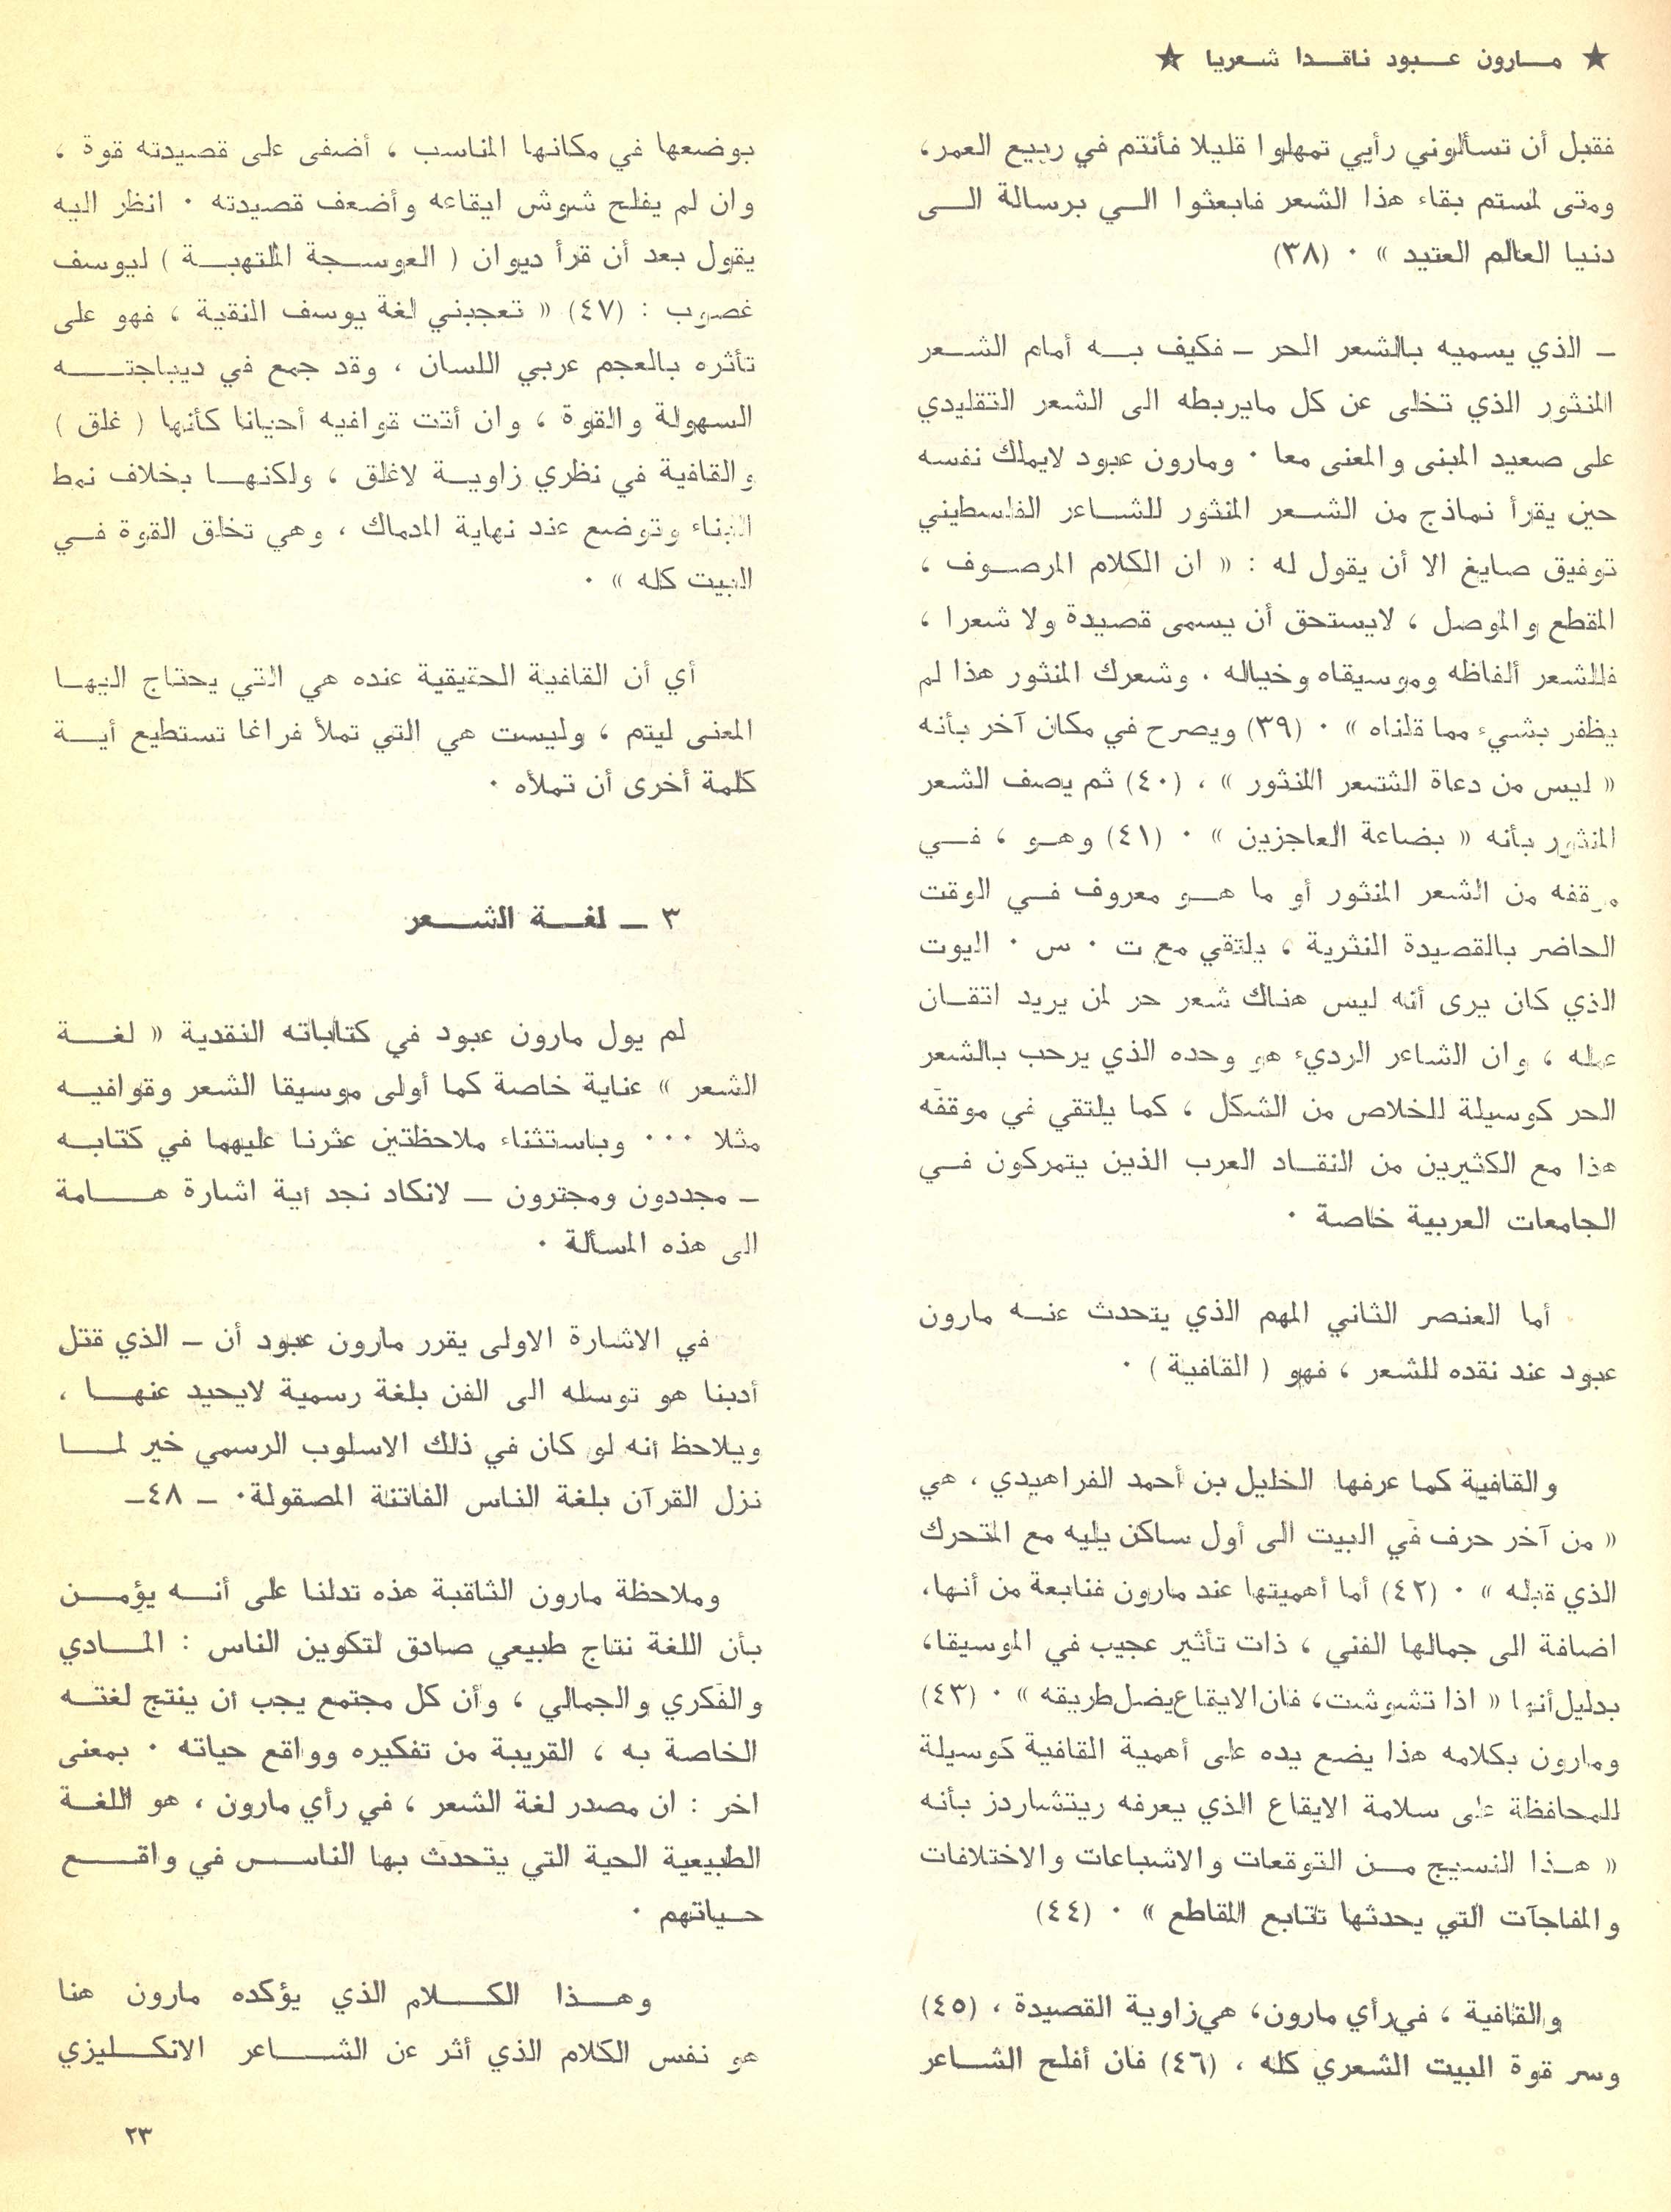 ★ مارون عبود ناقدا شعريا ★
فقبل أن تسألوني رأيي تمهلوا قليلا فأنتم في ربيع العمر،
ومتى لمستم بقاء هذا الشعر فابعثوا الي برسالة الى
دنيا العالم العتيد » ٠ (٣٨)
– الذي يسميه بالشعر الحر – فكيف به أمام الشعر
المنثور الذي تخلى عن كل مايربطه الى الشعر التقليدي
على صعيد المبنى والمعنى معا ٠ ومارون عبود لايملك نفسه
حين يقرأ نماذج من الشعر المنثور للشاعر الفلسطيني
توفيق صايغ الا أن يقول له : « ان الكلام المرصوف ،
المقطع والموصل ، لايستحق أن يسمى قصيدة ولا شعرا ،
فللشعر ألفاظه وموسيقاه وخياله ٠ وشعرك المنثور هذا لم
يظفر بشيء مما قلناه » ٠ (٣٩) ويصرح في مكان آخر بأنه
« ليس من دعاة الشعر المنثور » ، (٤٠) ثم يصف الشعر
المنثور بأنه « بضاعة العاجزين » ٠ (٤١) وهو ، في
موقفه من الشعر المنثور أو ما هو معروف في الوقت
الحاضر بالقصيدة النثرية ، يلتقي مع ت ٠ س ٠ اليوت
الذي كان يرى أنه ليس هناك شعر حر لمن يريد اتقان
عمله ، وان الشاعر الرديء هو وحده الذي يرحب بالشعر
الحر كوسيلة للخلاص من الشكل ، كما يلتقي في موقفه
هذا مع الكثيرين من النقاد العرب الذين يتمركون في
الجامعات العربية خاصة ٠
أما العنصر الثاني المهم الذي يتحدث عنه مارون
عبود عند نقده للشعر ، فهو ( القافية ) ٠
والقافية كما عرفها الخليل بن أحمد الفراهيدي ، هي
« من آخر حرف في البيت الى أول ساكن يليه مع المتحرك
الذي قبله » ٠ (٤٢) أما أهميتها عند مارون فنابعة من أنها،
اضافة الى جمالها الفني ، ذات تأثير عجيب في الموسيقا،
بدليل أنها « اذا تشوشت، فان الايقاع يضل طريقه » ٠ (٤٣)
ومارون بكلامه هذا يضع يده على أهمية القافية كوسيلة
للمحافظة على سلامة الايقاع الذي يعرفه ريتشاردز بأنه
« هذا النسيج من التوقعات والاشباعات والاختلافات
والمفاجآت التي يحدثها تتابع المقاطع » ٠ (٤٤)
والقافية ، في رأي مارون، هي زاوية القصيدة ، (٤٥)
وسر قوة البيت الشعري كله ، (٤٦) فان أفلح الشاعر
بوضعها في مكانها المناسب ، أضفى على قصيدته قوة ،
وان لم يفلح شوش ايقاعه وأضعف قصيدته ٠ انظر اليه
يقول بعد أن قرأ ديوان ( العوسجة الملتهبة ) ليوسف
غصوب : (٤٧) « تعجبني لغة يوسف النقية ، فهو على
تأثره بالعجم عربي اللسان ، وقد جمع في ديباجته
السهولة والقوة ، وان أتت قوافيه أحيانا كأنها ( غلق )
والقافية في نظري زاوية لاغلق ، ولكنها بخلاف نمط
البناء وتوضع عند نهاية المدماك ، وهي تخلق القوة في
البيت كله » ٠
أي أن القافية الحقيقية عنده هي التي يحتاج اليها
المعنى ليتم ، وليست هي التي تملأ فراغا تستطيع أية
كلمة أخرى أن تملأه ٠
٣ – لغة الشعر
لم يول مارون عبود في كتاباته النقدية « لغة
الشعر » عناية خاصة كما أولى موسيقا الشعر وقوافيه
مثلا ٠٠٠ وباستثناء ملاحظتين عثرنا عليهما في كتابه
– مجددون ومجترون – لانكاد نجد أية اشارة هامة
الى هذه المسألة ٠
في الاشارة الاولى يقرر مارون عبود أن – الذي قتل
أدبنا هو توسله الى الفن بلغة رسمية لايحيد عنها ،
ويلاحظ أنه لو كان في ذلك الاسلوب الرسمي خير لما
نزل القرآن بلغة الناس الفاتنة المصقولة٠ – ٤٨–
وملاحظة مارون الثاقبة هذه تدلنا على أنه يؤمن
بأن اللغة نتاج طبيعي صادق لتكوين الناس : المادي
والفكري والجمالي ، وأن كل مجتمع يجب أن ينتج لغته
الخاصة به ، القريبة من تفكيره وواقع حياته ٠ بمعنى
اخر : ان مصدر لغة الشعر ، في رأي مارون ، هو اللغة
الطبيعية الحية التي يتحدث بها الناس في واقع
حياتهم ٠
وهذا الكلام الذي يؤكده مارون هنا
هو نفس الكلام الذي أثر عن الشاعر الانكليزي
٢٣